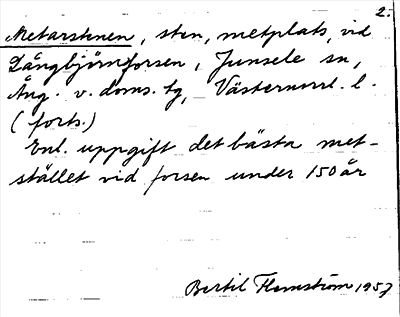 2.
Metarstenen, sten, metplats, vid
Långbjörnforsen, Junsele sn,
Ång. v. doms. tg, Västernorrl. l.
(forts.)
Enl. uppgift det bästa met-
stället vid forsen under 150 år
Bertil Flemström 1957